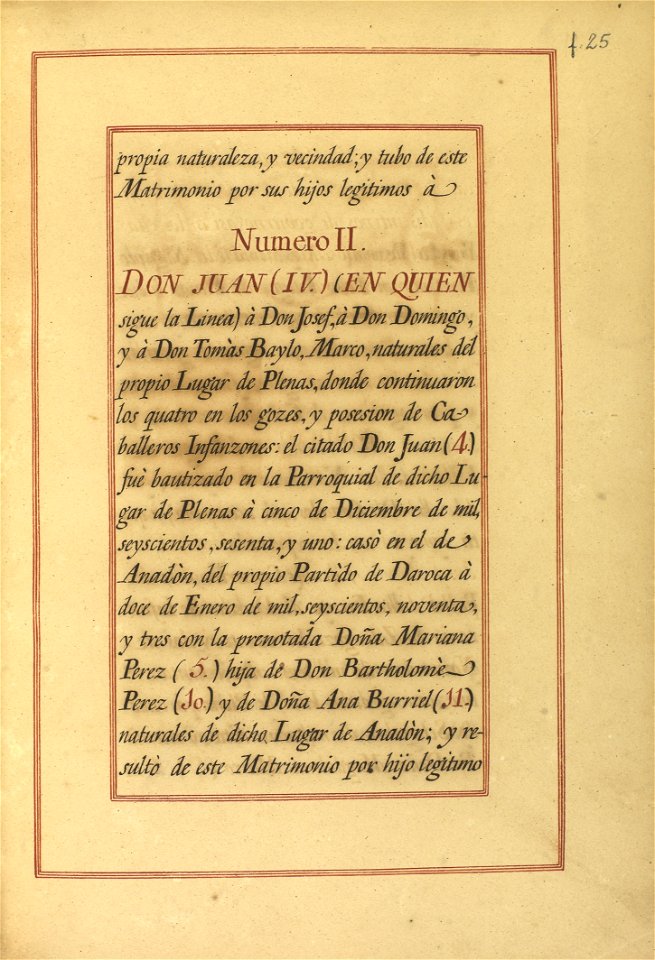 f. 25
propia naturaleza, y vecindad; y tubo de este
Matrimonio por sus hijos legitimos à
Numero II.
DON JUAN (IV.) (EN QUIEN
sigue la Linea) à Don Josef, à Don Domingo,
y à Don Tomàs Baylo, Marco, naturales del
propio Lugar de Plenas, donde continuaron
los quatro en los gozes, y posesion de Ca
balleros Infanzones: el citado Don Juan (4.)
fuè bautizado en la Parroquial de dicho Lu-
gar de Plenas à cinco de Diciembre de mil,
seyscientos, sesenta, y uno: casò en el de
Anadòn, del propio Partìdo de Daroca à
doce de Enero de mil, seyscientos, noventa,
y tres con la prenotada Doña Mariana
Perez (5.) hija de Don Bartholomè
Perez (10.) y de Doña Ana Burriel (11.)
naturales de dicho Lugar de Anadòn; y re-
sultò de este Matrimonio por hijo legitimo